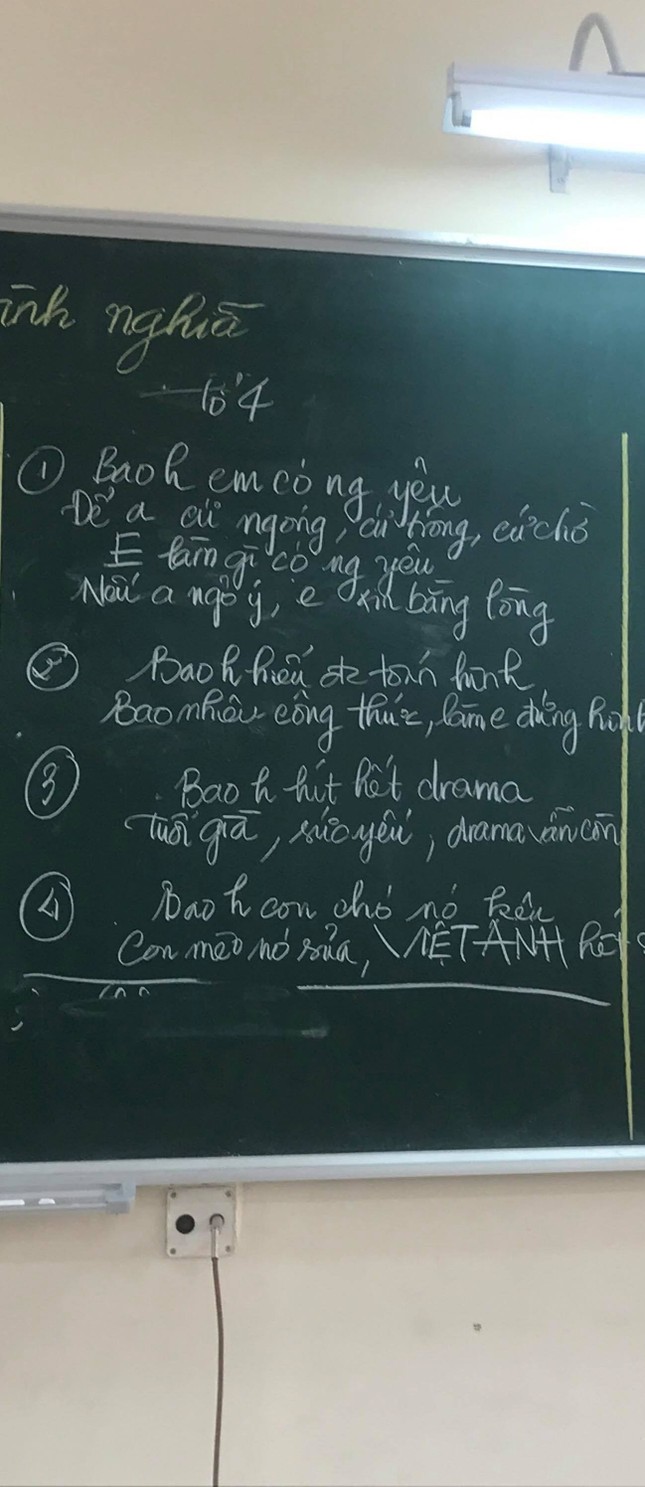 ình nghĩa
Tổ 4
① Bao h em có ng yêu
Để a cứ ngóng, cứ trông, cứ chờ
E làm gì có ng yêu
Nếu a ngỏ ý, e xin bằng lòng
② Bao h hiểu đc toán hình
Bao nhiêu công thức, làm e đứng hình
③ Bao h hít hết drama
Tuổi già, sức yếu, drama vẫn còn
④ Bao h con chó nó kêu
Con mèo nó sủa, VIỆT ANH hết